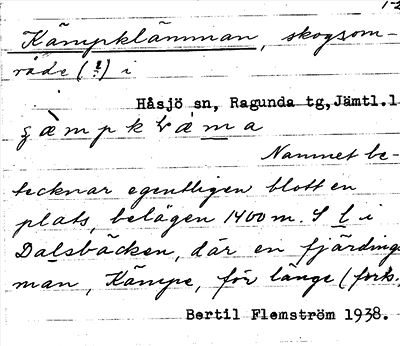 1-2
Kämpklämman, skogsom-
råde (!) i
Håsjö sn, Ragunda tg, Jämtl.l
Namnet be-
tecknar egentligen blott en
plats, belägen 1400 m. S l i
Dalsbäcken, där en fjärding
man, Kämpe, för länge (förk.
Bertil Flemström 1938.